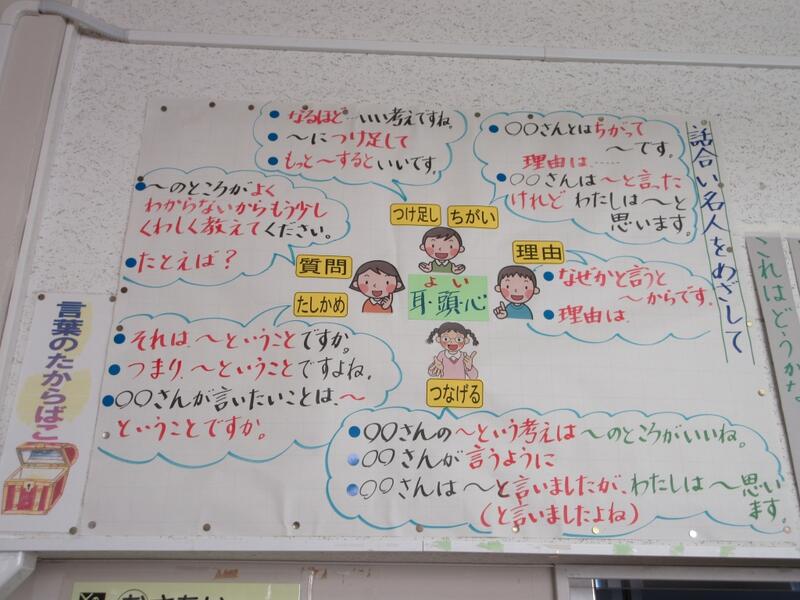 話合い名人をめざして
なるほど…いい考えですね。
～につけ足して
もっと～するといいです。
〇〇さんとはちがって
～です。
理由は……
〇〇さんは～と言った
けれど わたしは～と
思います。
～のところがよく
わからないからもう少し
くわしく教えてください。
たとえば？
つけ足し
ちがい
質問
たしかめ
理由
よい
耳・頭・心
つなげる
なぜかと言うと
～からです。
理由は、
それは、～ということですか。
つまり、～ということですよね。
〇〇さんが言いたいことは、～
ということですか。
〇〇さんの～という考えは～のところがいいね。
〇〇さんが言うように
〇〇さんは～と言いましたが、わたしは～思い
ます。
（と言いましたよね）
言葉のたからばこ
これはどうかな